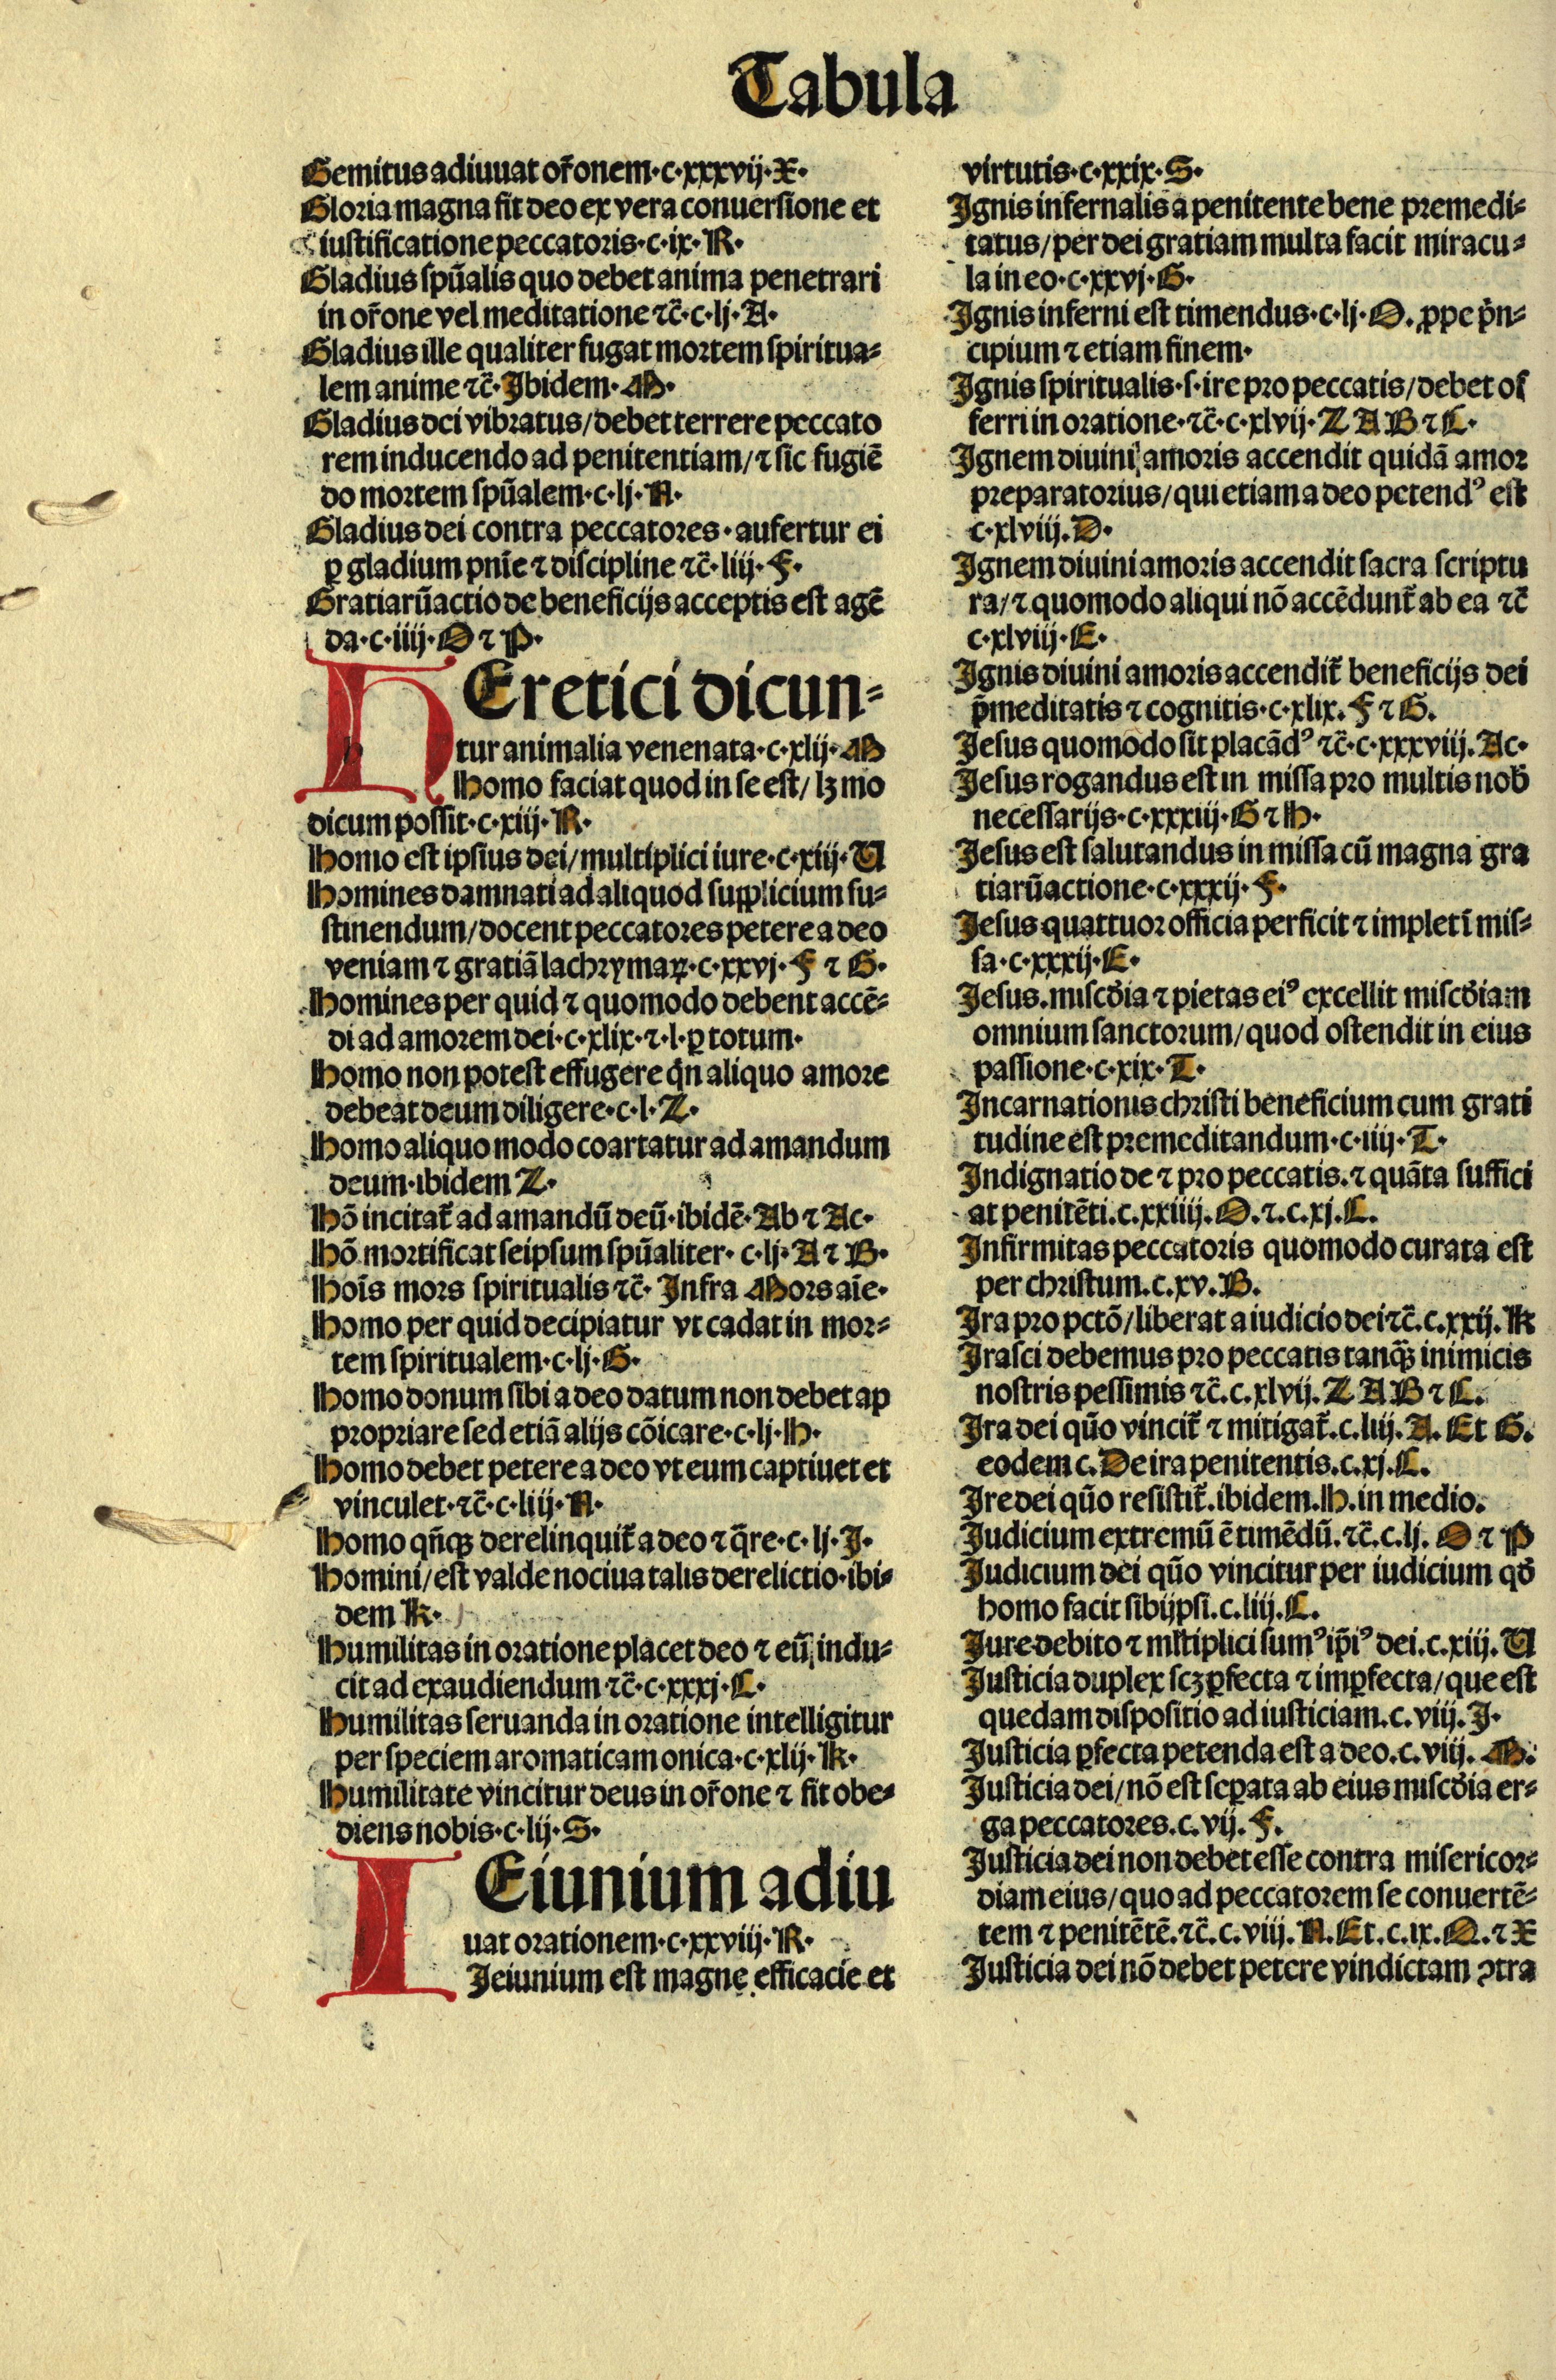 Tabula
Gemitus adiuuat or̃onem·c·xxxvij·X·
Gloria magna fit deo ex vera conuersione et
iustificatione peccatoris·c·ix·R·
Gladius spũalis quo debet anima penetrari
in or̃one vel meditatione ⁊c̃·c·lj·A·
Gladius ille qualiter fugat mortem spiritua⸗
lem anime ⁊c̃·Ibidem·M·
Gladius dei vibratus/debet terrere peccato
rem inducendo ad penitentiam/⁊ sic fugiē
do mortem spũalem·c·lj·N·
Gladius dei contra peccatores·aufertur ei
ꝑ gladium pnĩe ⁊ discipline ⁊c̃·liij·F·
Gratiarũactio de beneficijs acceptis est agē
da·c·iiij·O ⁊ P·
HEretici dicun⸗
tur animalia venenata·c·xlij·M
Homo faciat quod in se est/lꝫ mo
dicum possit·c·xiij·R·
Homo est ipsius dei/multiplici iure·c·xiij·U
Homines damnati ad aliquod supplicium su⸗
stinendum/docent peccatores petere a deo
veniam ⁊ gratiā lachrymaꝝ·c·xxvj·F ⁊ G·
Homines per quid ⁊ quomodo debent accē⸗
di ad amorem dei·c·xlix·⁊·l·ꝑ totum·
Homo non potest effugere q̇n aliquo amore
debeat deum diligere·c·l·Z·
Homo aliquo modo coartatur ad amandum
deum·ibidem Z·
Hõ incitat᷑ ad amandū deũ·ibidē·Ab ⁊ Ac·
Hõ mortificat seipsum spũaliter·c·lj·A ⁊ B·
Hoĩs mors spiritualis ⁊c̃·Infra Mors aĩe·
Homo per quid decipiatur vt cadat in mor⸗
tem spiritualem·c·lj·G·
Homo donum sibi a deo datum non debet ap
propriare sed etiā alijs cõicare·c·lj·H·
Homo debet petere a deo vt eum captiuet et
vinculet·⁊c̃·c·liij·N·
Homo qñqꝫ derelinquit᷑ a deo ⁊ q̃re·c·lj·I·
Homini/est valde nociua talis derelictio·ibi⸗
dem K·
Humilitas in oratione placet deo ⁊ eũ indu⸗
cit ad exaudiendum ⁊c̃·c·xxxj·C·
Humilitas seruanda in oratione intelligitur
per speciem aromaticam onica·c·xlij·K·
Humilitate vincitur deus in or̃one ⁊ fit obe⸗
diens nobis·c·lij·S·
IEiunium adiu
uat orationem·c·xxviij·R·
Jeiunium est magnę efficacie et
virtutis·c·xxix·S·
Ignis infernalis a penitente bene premedi⸗
tatus/per dei gratiam multa facit miracu⸗
la in eo·c·xxvj·G·
Ignis inferni est timendus·c·lj·O·ꝓpc p̃n⸗
cipium ⁊ etiam finem·
Ignis spiritualis·s·ire pro peccatis/debet of
ferri in oratione·⁊c̃·c·xlvij·Z A B ⁊ C·
Ignem diuini amoris accendit quidā amor
preparatorius/qui etiam a deo petendꝰ est
c·xlviij·D·
Ignem diuini amoris accendit sacra scriptu
ra/⁊ quomodo aliqui nō accēdunt᷑ ab ea ⁊c̃
c·xlviij·E·
Ignis diuini amoris accendit᷑ beneficijs dei
p̃meditatis ⁊ cognitis·c·xlix·F ⁊ G.
Jesus quomodo sit placādꝰ ⁊c̃·c·xxxviij.Ac·
Jesus rogandus est in missa pro multis nob̃
necessarijs·c·xxxiij·G ⁊ H·
Jesus est salutandus in missa cũ magna gra
tiarũactione·c·xxxij·F·
Jesus quattuor officia perficit ⁊ implet ĩ mis⸗
sa·c·xxxij·E·
Jesus.mis̃cdia ⁊ pietas eiꝰ excellit mis̃cdiam
omnium sanctorum/quod ostendit in eius
passione·c·xix·T·
Incarnationis christi beneficium cum grati
tudine est premeditandum·c·iiij·T·
Indignatio de ⁊ pro peccatis.⁊ quāta suffici
at penitēti.c.xxiiij.O.⁊.c.xj.C.
Infirmitas peccatoris quomodo curata est
per christum.c.xv.B.
Ira pro pctõ/liberat a iudicio dei ⁊c̃.c.xxij.K
Irasci debemus pro peccatis tanqꝫ inimicis
nostris pessimis ⁊c̃.c.xlvij.Z A B ⁊ C.
Ira dei qũo vincit᷑ ⁊ mitigat᷑.c.liij.A.Et G.
eodem c.De ira penitentis.c.xj.C.
Ire dei qũo resistit᷑.ibidem.H.in medio.
Judicium extremũ ē timēdũ.⁊c̃.c.lj.O ⁊ P
Judicium dei qũo vincitur per iudicium qđ
homo facit sibijpsi.c.liij.C.
Jure debito ⁊ mltiplici sumꝰ ip̃iꝰ dei.c.xiij.U
Justicia duplex scꝫ ꝑfecta ⁊ imꝑfecta/que est
quedam dispositio ad iusticiam.c.viij.I·
Justicia ꝑfecta petenda est a deo.c.viij.M.
Justicia dei/nō est seꝑata ab eius mis̃cdia er⸗
ga peccatores.c.vij.F.
Justicia dei non debet esse contra misericor⸗
diam eius/quo ad peccatorem se conuertē⸗
tem ⁊ penitētē.⁊c̃.c.viij.N.Et.c.ix.Q.⁊ X
Justicia dei nō debet petere vindictam ↄtra